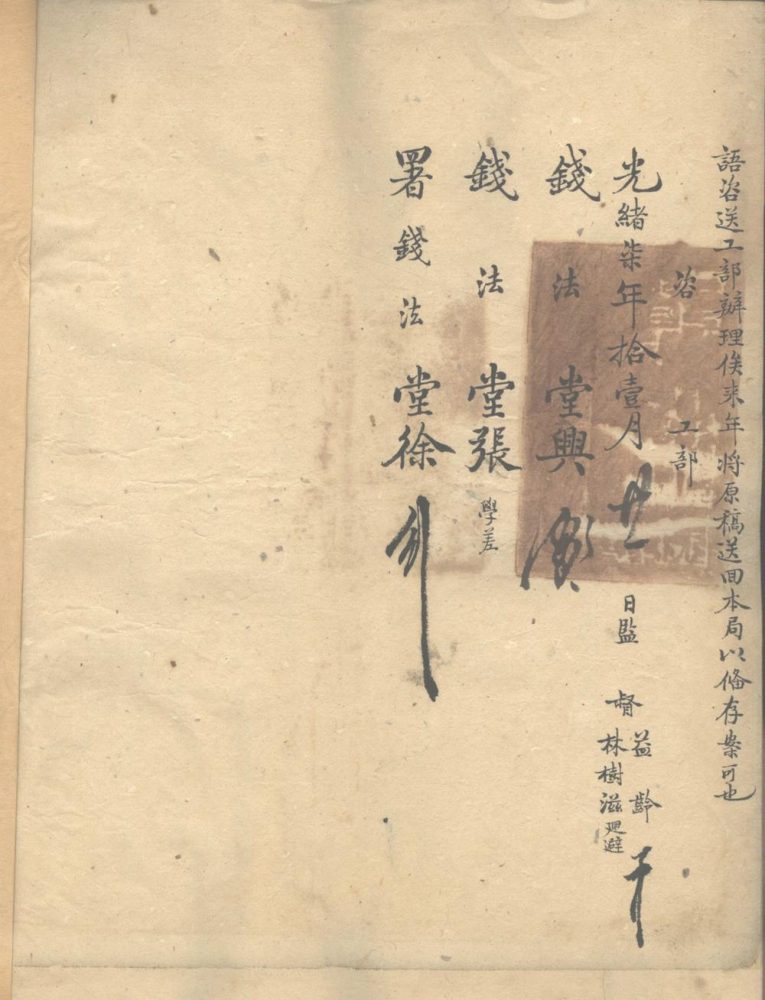 語咨送工部辦理俟来年将原稿送回本局以俻存案可也
咨　工部
光緒柒年拾壹月廿　日監督益齡
林樹滋廻避
錢法堂興
錢法堂張學差
署錢法堂徐